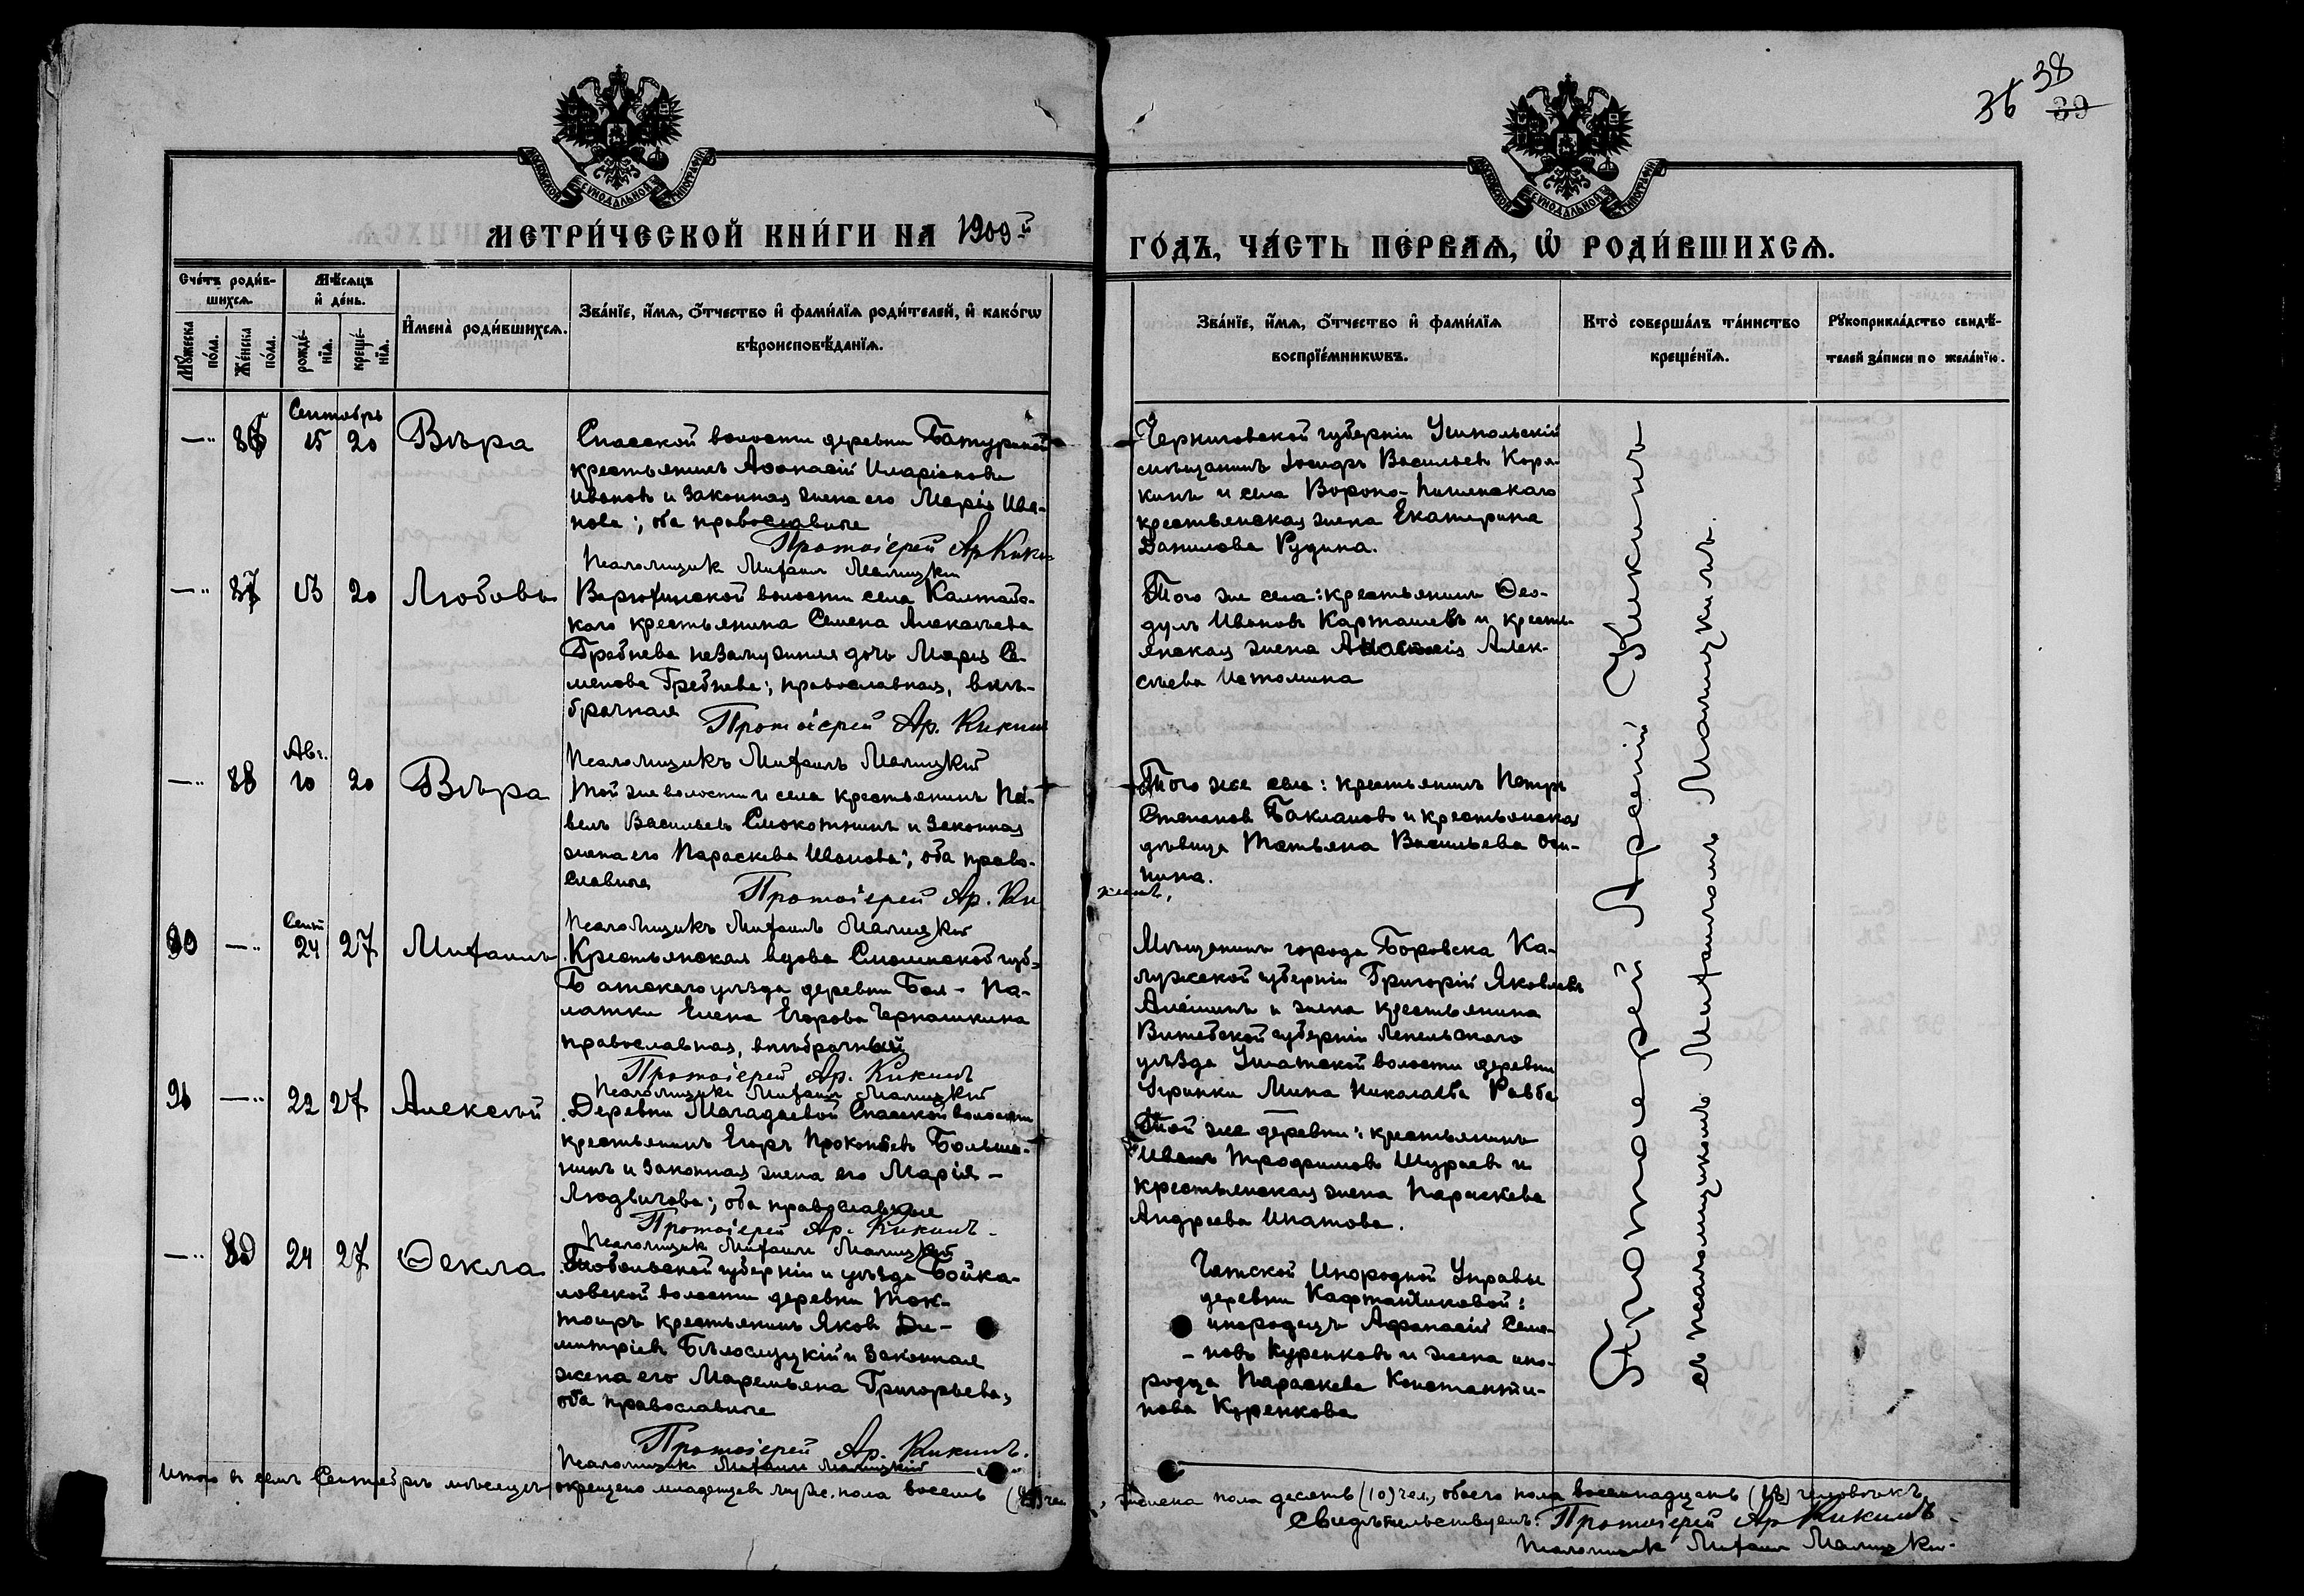 36 38
39
МОСКОВСКОЙ СѴНОДАЛЬНОЙ ТИПОГРАФІИ
МОСКОВСКОЙ СѴНОДАЛЬНОЙ ТИПОГРАФІИ
МЕТРИ́ЧЕСКОЙ КНИ́ГИ НА 1909й
ГО́ДЪ, ЧА́СТЬ ПЕ́РВАѦ, Ѡ҆ РОДИ́ВШИХСѦ.
Сче́тъ роди́в-
шихсѧ.
Мꙋ́жеска по́ла.
Же́нска по́ла.
Мѣ́сѧцъ
и҆ де́нь.
рожде́-
нїѧ.
креще́-
нїѧ.
И҆мена̀ роди́вшихсѧ.
Зва́нїе, и҆́мѧ, ѻ҆́тчество и҆ фами́лїѧ роди́телей, и҆ како́гѡ
вѣроисповѣ́данїѧ.
Зва́нїе, и҆́мѧ, ѻ҆́тчество и҆ фами́лїѧ
воспрїе́мникѡвъ.
Кто̀ соверша́лъ та́инство
креще́нїѧ.
Рꙋкоприкла́дство свидѣ́-
телей за́писи по жела́нїю.
Сентябрь
— 86 15 20 Вѣра
Спасской волости деревни Батуриной
крестьянинъ Аѳанасій Иларіоновъ
Ивановъ и законная жена его Марія Ива-
нова; оба православные
Протоіерей Ар Кикинъ
Псаломщикъ Михаилъ Малицкій
Черниговской губерніи
мѣщанинъ Іосифъ Васильевъ Коря-
кинъ и села Вороно-Пашенскаго
крестьянская жена Екатерина
Данилова Рудина.
— 87 15 20 Любовь
Варюхинской волости села Калтайс-
каго крестьянина Семена Алексѣева
Гребнева незамужняя дочь Марія Се-
менова Гребнева; православная, внѣ-
брачная
Протоіерей Ар. Кикинъ
Псаломщикъ Михаилъ Малицкій
Того же села: крестьянинъ Ѳео-
дулъ Ивановъ Карташевъ и кресть-
янская жена Анастасія Алек-
сѣева Истомина
Авг.
— 88 10 20 Вѣра
Той же волости и села крестьянинъ Па-
велъ Васильевъ Смокотнинъ и законная
жена его Параскева Иванова; оба право-
славные
Протоіерей Ар. Кикинъ,
Псаломщикъ Михаилъ Малицкій
Того же села: крестьянинъ Петръ
Степановъ Баклановъ и крестьянская
дѣвица Татьяна Васильева Оси-
пина.
Сент
90 — 24 27 Михаилъ
Крестьянская вдова Смоленской губ.
деревни Бол- Па-
латки Елена Егорова Чернашкина
православная, внѣбрачный
Протоіерей Ар. Кикинъ
Псаломщикъ Михаилъ Малицкій
Мѣщанинъ города Боровска Ка-
лужской губерніи Григорій Яковлевъ
Алёшинъ и жена крестьянина
Витебской губерніи Лепельскаго
уѣзда Ушатской волости деревни
Угринки Мина Николаева Равба
91 — 22 27 Алексѣй
Деревни Магадаевой Спасской волости
крестьянинъ Егоръ Прокопьевъ Больша-
нинъ и законная жена его Марія-
Людвигова; оба православные
Протоіерей Ар. Кикинъ.
Псаломщикъ Михаилъ Малицкій
Той же деревни: крестьянинъ
Иванъ Трофимовъ Шураевъ и
крестьянская жена Параскева
Андреева Ипатова.
— 89 24 27 Ѳекла
Тобольской губерніи и уѣзда Бойка-
ловской волости деревни Ток-
тоиръ крестьянинъ Яковъ Ди-
митріевъ Бѣлослуцкій и законная
жена его Маремьяна Григорьева,
оба православные
Протоіерей Ар. Кикинъ.
Псаломщикъ Михаилъ Малицкій
Чатской Инородной Управы
деревни Кафтанчиковой:
инородецъ Афанасій Семе-
новъ Куренковъ и жена ино-
родца Параскева Константи-
нова Куренкова
Протоіерей Арсеній Кикинъ
съ псаломщикомъ Михаиломъ Малицкимъ.
Итого въ семъ Сентябрѣ мѣсяцѣ окрещено младенцевъ муж. пола восемь (8) чел, женска пола десять (10) чел., обоего пола восемнадцать (18) человѣкъ
Свидѣтельствуемъ: Протоіерей Ар Кикинъ
Псаломщикъ Михаилъ Малицкій.